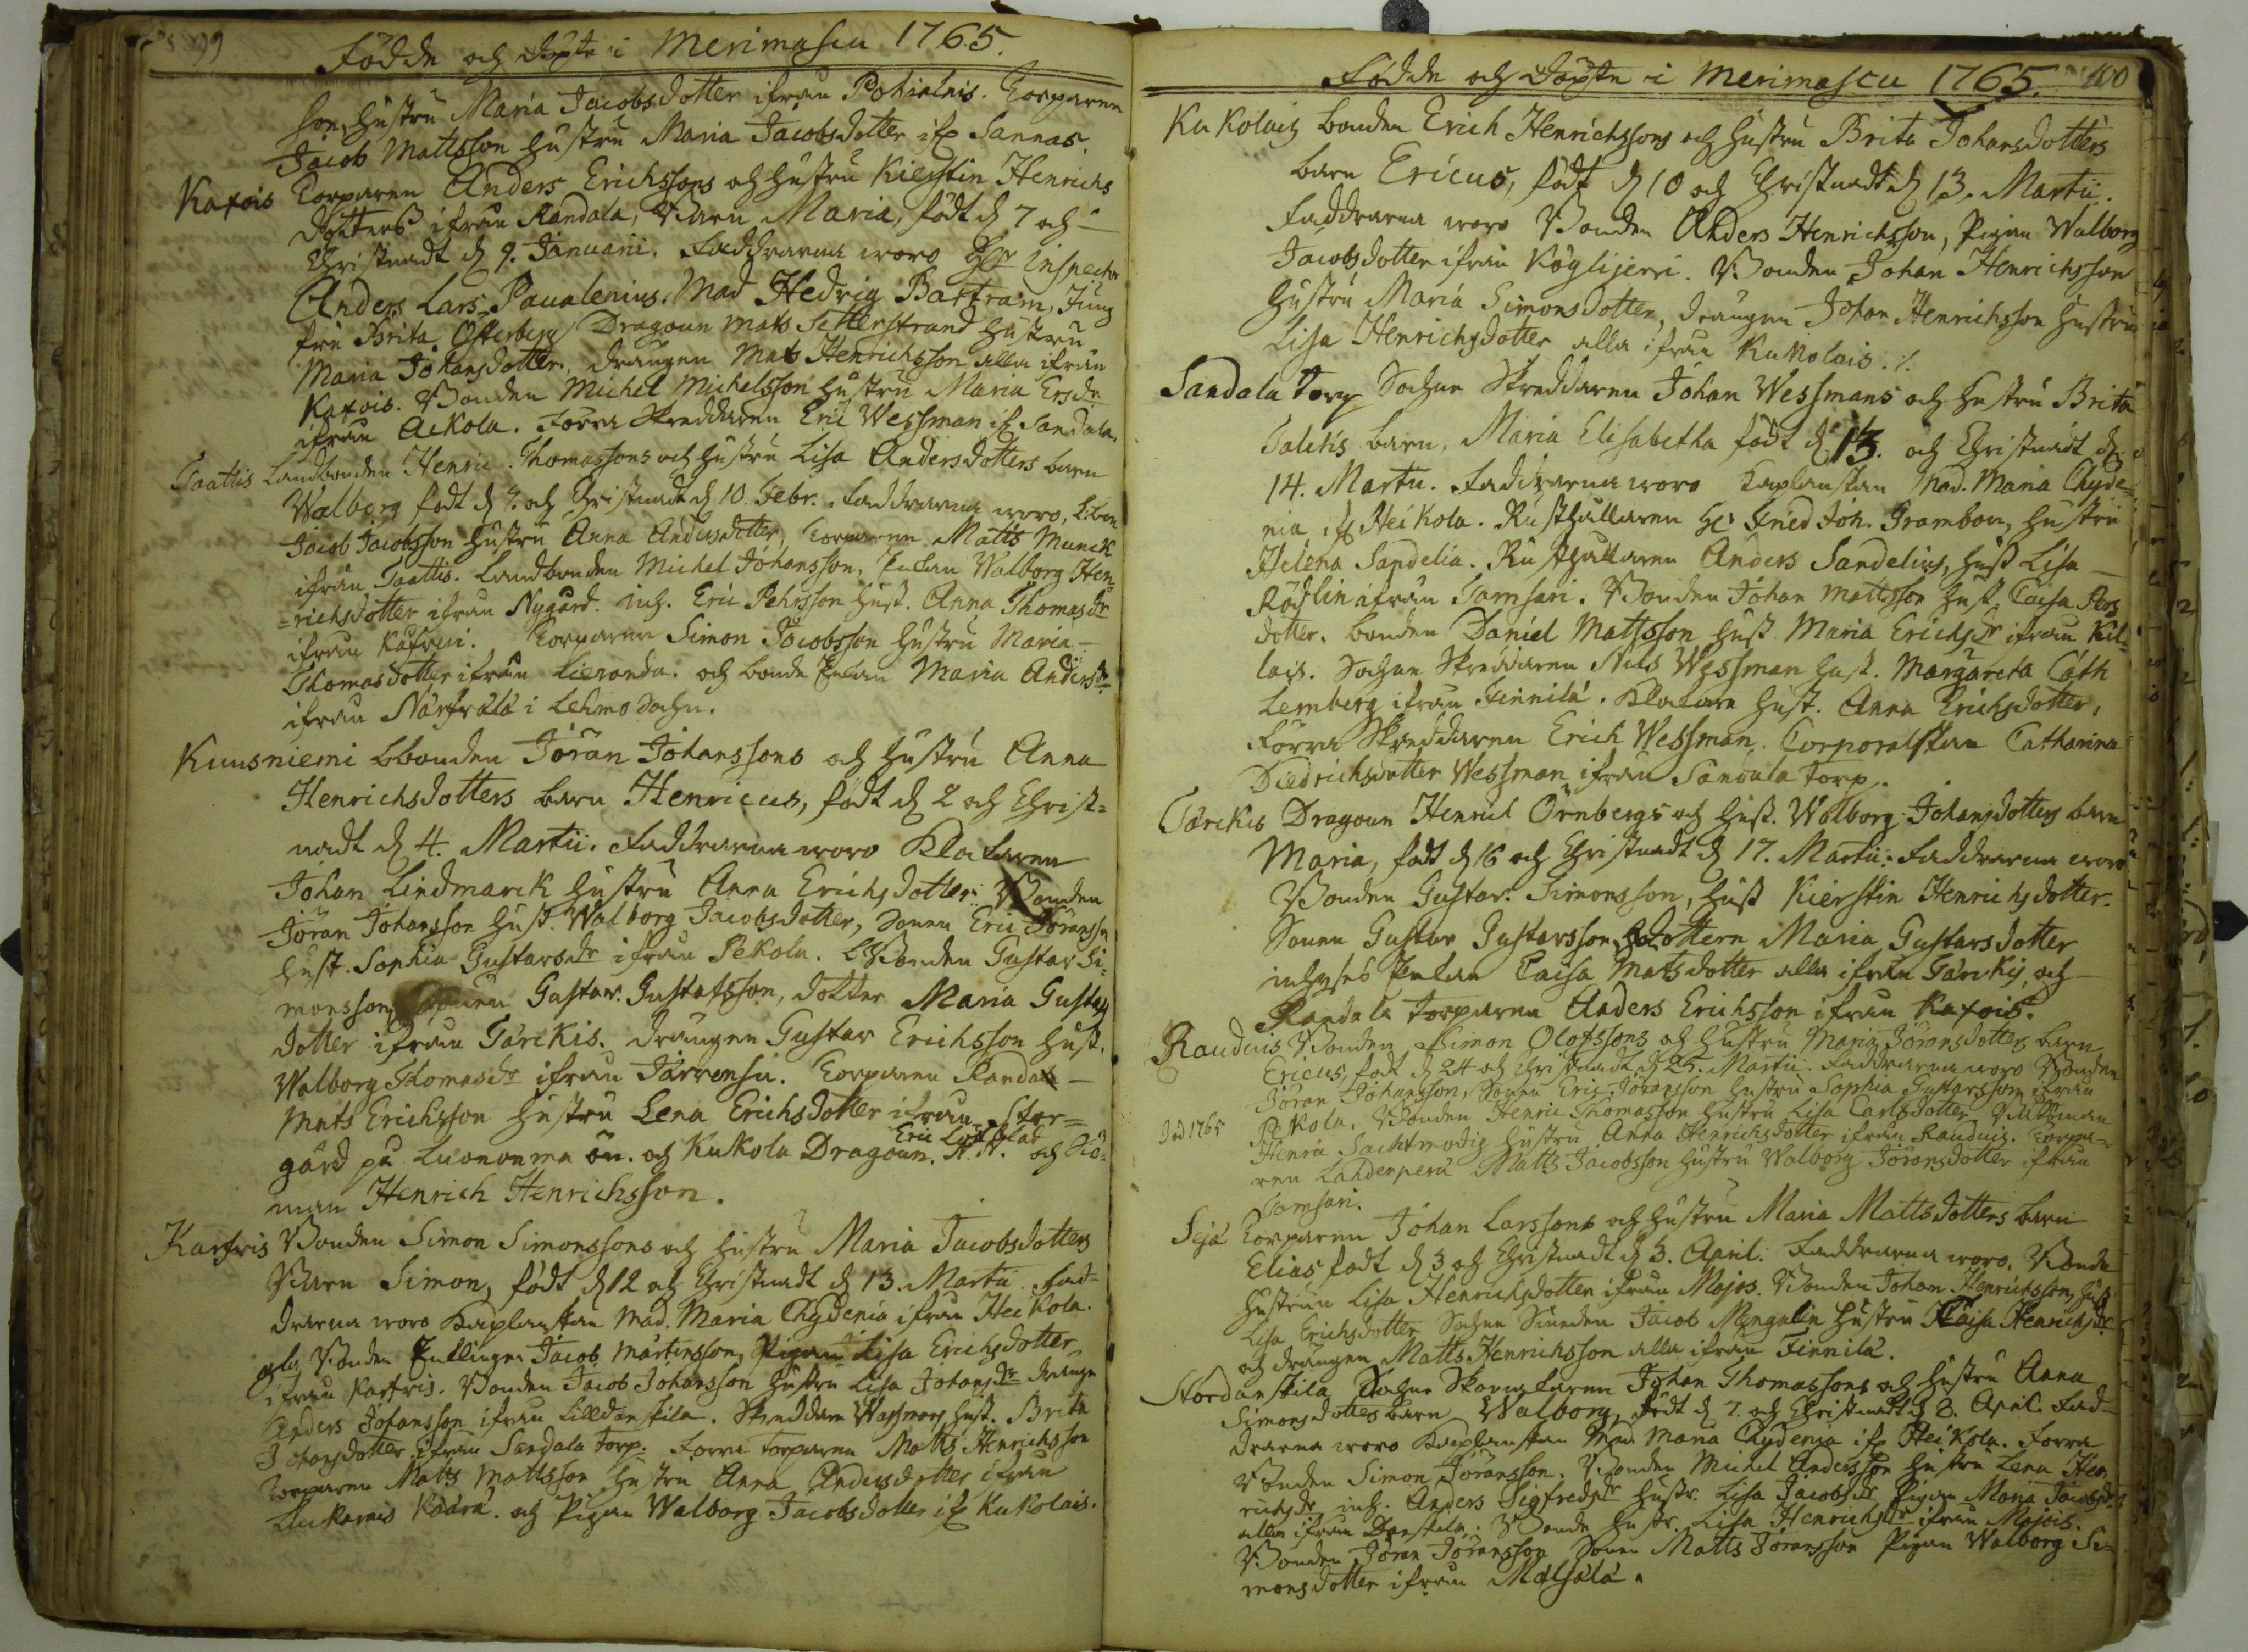 99
Födde och döpte i Merimascu 1765.
son, hustru Maria Jacobsdotter ifrån Pohialais. Torparen
Jacob Mattsson hustru Maria Jacobsdotter if. Sannas.
Kaxois Torparen Anders Erichssons och hustru Kierstin Henrichs
dotters ifrån Randala, Barn Maria, födt d 7 och
Christnadt d 9. Januarii. Faddrarna woro Hr Inspector
Anders Lars Paualenius. Mad Hedvig Bartram, Jung
fru Brita Österberg Dragoun Mats Setterstrand hustru
Maria Johansdotter, drängen Mats Henrichsson alla ifrån
Kaxois. Bonden Michel Michelsson hustru Maria Ersdr
ifrån Aikola. Förra Skreddaren Eric Wessman if Sandala.
Taattis Landbonden Henric Thomassons och hustru Lisa Andersdotters barn
Walborg födt d 9. och Christnadt d 10 Febr. Faddrarna woro, L:bon
Jacob Jacobsson hustru Anna Andersdotter, torparen Matts Munck
ifrån Taattis. Landbonden Michel Johansson, Enkan Walborg Hen=
=richsdotter ifrån Nygård. inh. Eric Pehrsson hust. Anna Thomasdr
ifrån Kafrais. Torparen Simon Jacobsson hustru Maria
Thomasdotter ifrån Lieranda. och bonde Enkan Maria Andersdr
ifrån Närfrälä i Lehmo Sochn.
Kuusniemi Lbonden Jöran Johanssons och hustru Anna
Henrichsdotters barn Henricus, födt d 2 och Christ=
nadt d 4. Martii. Faddrarna woro Klockaren
Johan Lindmarck hustru Anna Erichsdotter. Bonden
Jöran Johansson hust. Walborg Jacobsdotter, Sonen Eric Jöranss
hust. Sophia Gustavsdr ifrån Pekola. LBonden Gustav Si=
monsson, Sonen Gustav Gustafsson, dotter Maria Gustavs
dotter ifrån Tärckis. drängen Gustav Erichsson hust.
Walborg Thomasdr ifrån Järrensu. Torparen Randala
Mats Erichsson hustru Lena Erichsdotter ifrån Stor=
gård på Luononma ön. och Kukola Dragoun. Eric Löfblad N.N. och Siö=
man Henrich Henrichsson.
Karfvis Bonden Simon Simonssons och hustru Maria Jacobsdotters
Barn Simon, födt d 12 och Christnadt d 13. Martii. Fad=
drarna woro Kaplanskan Mad. Maria Chydenia ifrån Heikola.
Bonden Jacob Mårtensson, Pigan Lisa Erichsdotter
ifrån Karfvis. Bonden Jacob Johansson hustru Lisa Johansdr Dränge
Anders Johansson ifrån Lilldanskila. Skreddare Wessmans hust. Brita
Johansdotter ifrån Sandala Torp. Förra Torparen Matts Henrichsson
Torparen Matts Mattsson hustru Anna Andersdotter ifrån
Luckarais Kåårä. och Pigan Walborg Jacobsdotter if. Kukolais.
Födde och döpte i Merimascu 1765. 100
Kukolais Bonden Erich Henrichssons och hustru Brita Johansdotters
barn Ericus, födt d 10 och Christnadt d 13. Martii.
Faddrarna woro Bonden Anders Henrichsson, Pigan Walborg
Jacobsdotter ifrån Köglijerri. Bonden Johan Henrichsson
hustru Maria Simonsdotter, drängen Johan Henrichsson hustru
Lisa Henrichsdotter alla ifrån Kukolais.
Sandala Torp Sochne Skreddaren Johan Wessmans och hustru Brita
Talitis barn, Maria Elisabetha födt d 13. och Christnadt d
14. Martii. Faddrarna woro Kaplanskan Mad. Maria Chyde=
nia, if Heikola. Rusthållaren Hr Fried Joh. Grambou, hustru
Helena Sandelia. Rusthållaren Anders Sandelius, hust Lisa
Rödlin ifrån Samsari. Bonden Johan Mattsson hust Caisa Pers
dotter. bonden Daniel Mattsson hust Maria Erichsdr ifrån Kil=
lais. Sochne Skreddaren Nils Wessman hust. Margareta Cath
Lemberg ifrån Finnilä. Klockare hust. Anna Erichsdotter,
Förra Skreddaren Erich Wessman. Corporalskan Catharina
Diedrichsdotter Wessman ifrån Sandala Torp.
Tärckis Dragoun Henric Örnbergs och hust. Walborg Johansdotters barn
Maria, födt d 16 och Christnadt d 17. Martii. Faddrarna woro
Bonden Gustav Simonsson, hust Kierstin Henrichsdotter.
Sonen Gustav Gustavsson, dottern Maria Gustavsdotter
inhyses Enkan Caisa Matsdotter alla ifrån Tärckis, och
Randala Torparen Anders Erichsson ifrån Kaxois.
Rauduis Bonden Simon Olofssons och hustru Maria Jöransdotters barn
Ericus, födt d 24 och Christnadt d 25. Martii. Faddrarna woro Bonden
Jöran Johansson, Sonen Eric Jöransson hustru Sophia Gustavsson ifrån
Död 1765 Pekola. Bonden Henric Thomasson hustru Lisa Carlsdotter
Henric Sachtmodig hustru Anna Henrichsdotter ifrån Rauduis. Torpa=
ren Lahdenperä Matts Jacobsson hustru Walborg Jöransdotter ifrån
Samsari.
Sejä Torparen Johan Larssons och hustru Maria Mattsdotters barn
Elias födt d 3 och Christnadt d 3. April. Faddrarna woro, Bonde
hustrun Lisa Henrichsdotter ifrån Majois. Bonden Johan Henrichsson, hust
Lisa Erichsdotter Sochne Smeden Jacob Mengalin hustru Caisa Henrichsdr
och drängen Matts Henrichsson alla ifrån Finnilä.
Stordanskila Sochne Skomakaren Johan Thomassons och hustru Anna
Simonsdotters barn Walborg, födt d 7. och Christnadt d 8. April. Fad=
drarna woro Kaplanskan Mad Maria Chydenia if Heikola. Förra
Bonden Simon Jöransson. Bonden Michel Andersson hustru Lena Hen
richsdr inh. Anders Sigfredsdr hustr. Lisa Jacobsdr Pigan Maria Jacobsdr
alla ifrån Danskila. Bonde hustr. Lisa Henrichsdr ifrån Majois.
Bonden Jöran Jöransson Sonen Matts Jöransson Pigan Walborg Si=
monsdotter ifrån Målsälä.